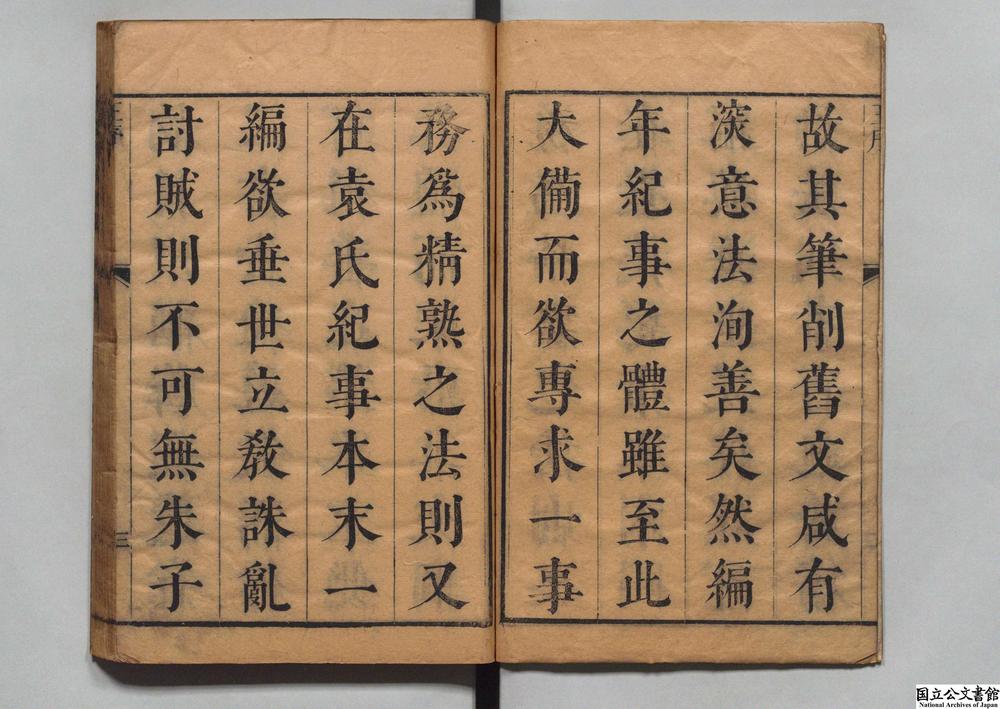 故其筆削舊文咸有
深意法洵善矣然編
年紀事之體雖至此
大備而欲專求一事
務爲精熟之法則又
在袁氏紀事本末一
編欲垂世立敎誅亂
討賊則不可無朱子
三
国立公文書館
National Archives of Japan